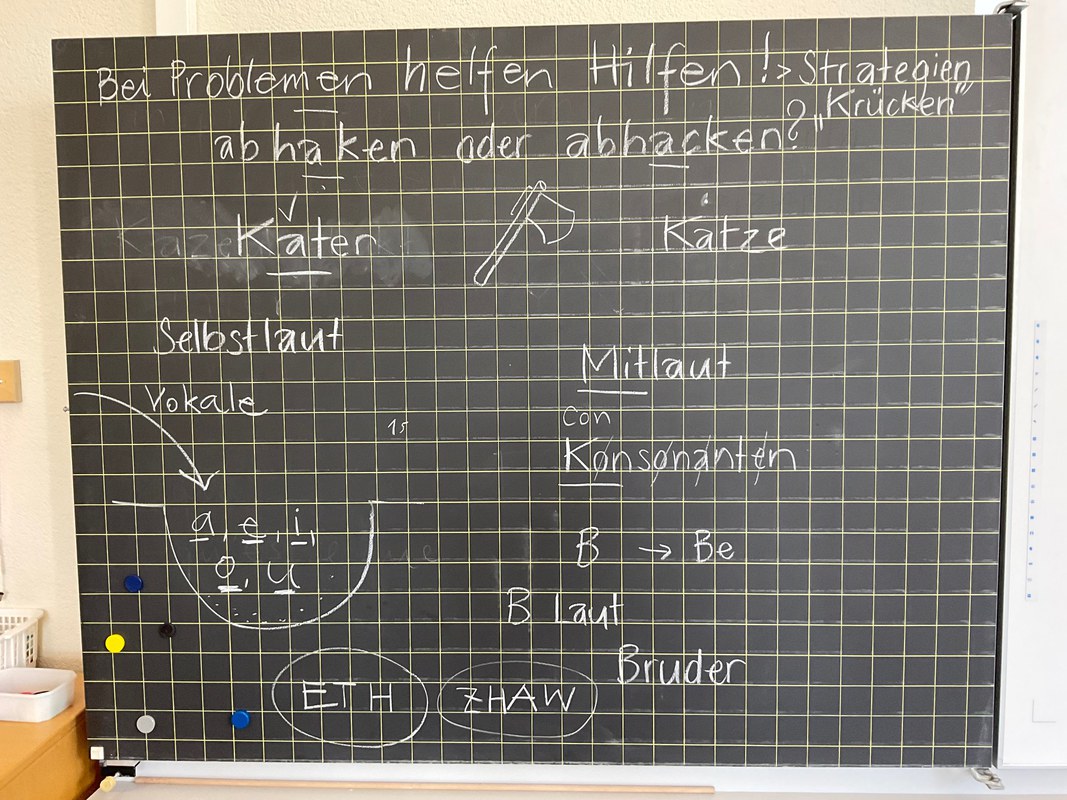 Bei Problemen helfen Hilfen !> Strategien
"Krücken"
abhaken oder abhacken?
Kater
Katze
Selbstlaut
Mitlaut
Vokale
con
15
Konsonanten
a, e, i,
o, u
B → Be
B Laut
Bruder
ETH
ZHAW